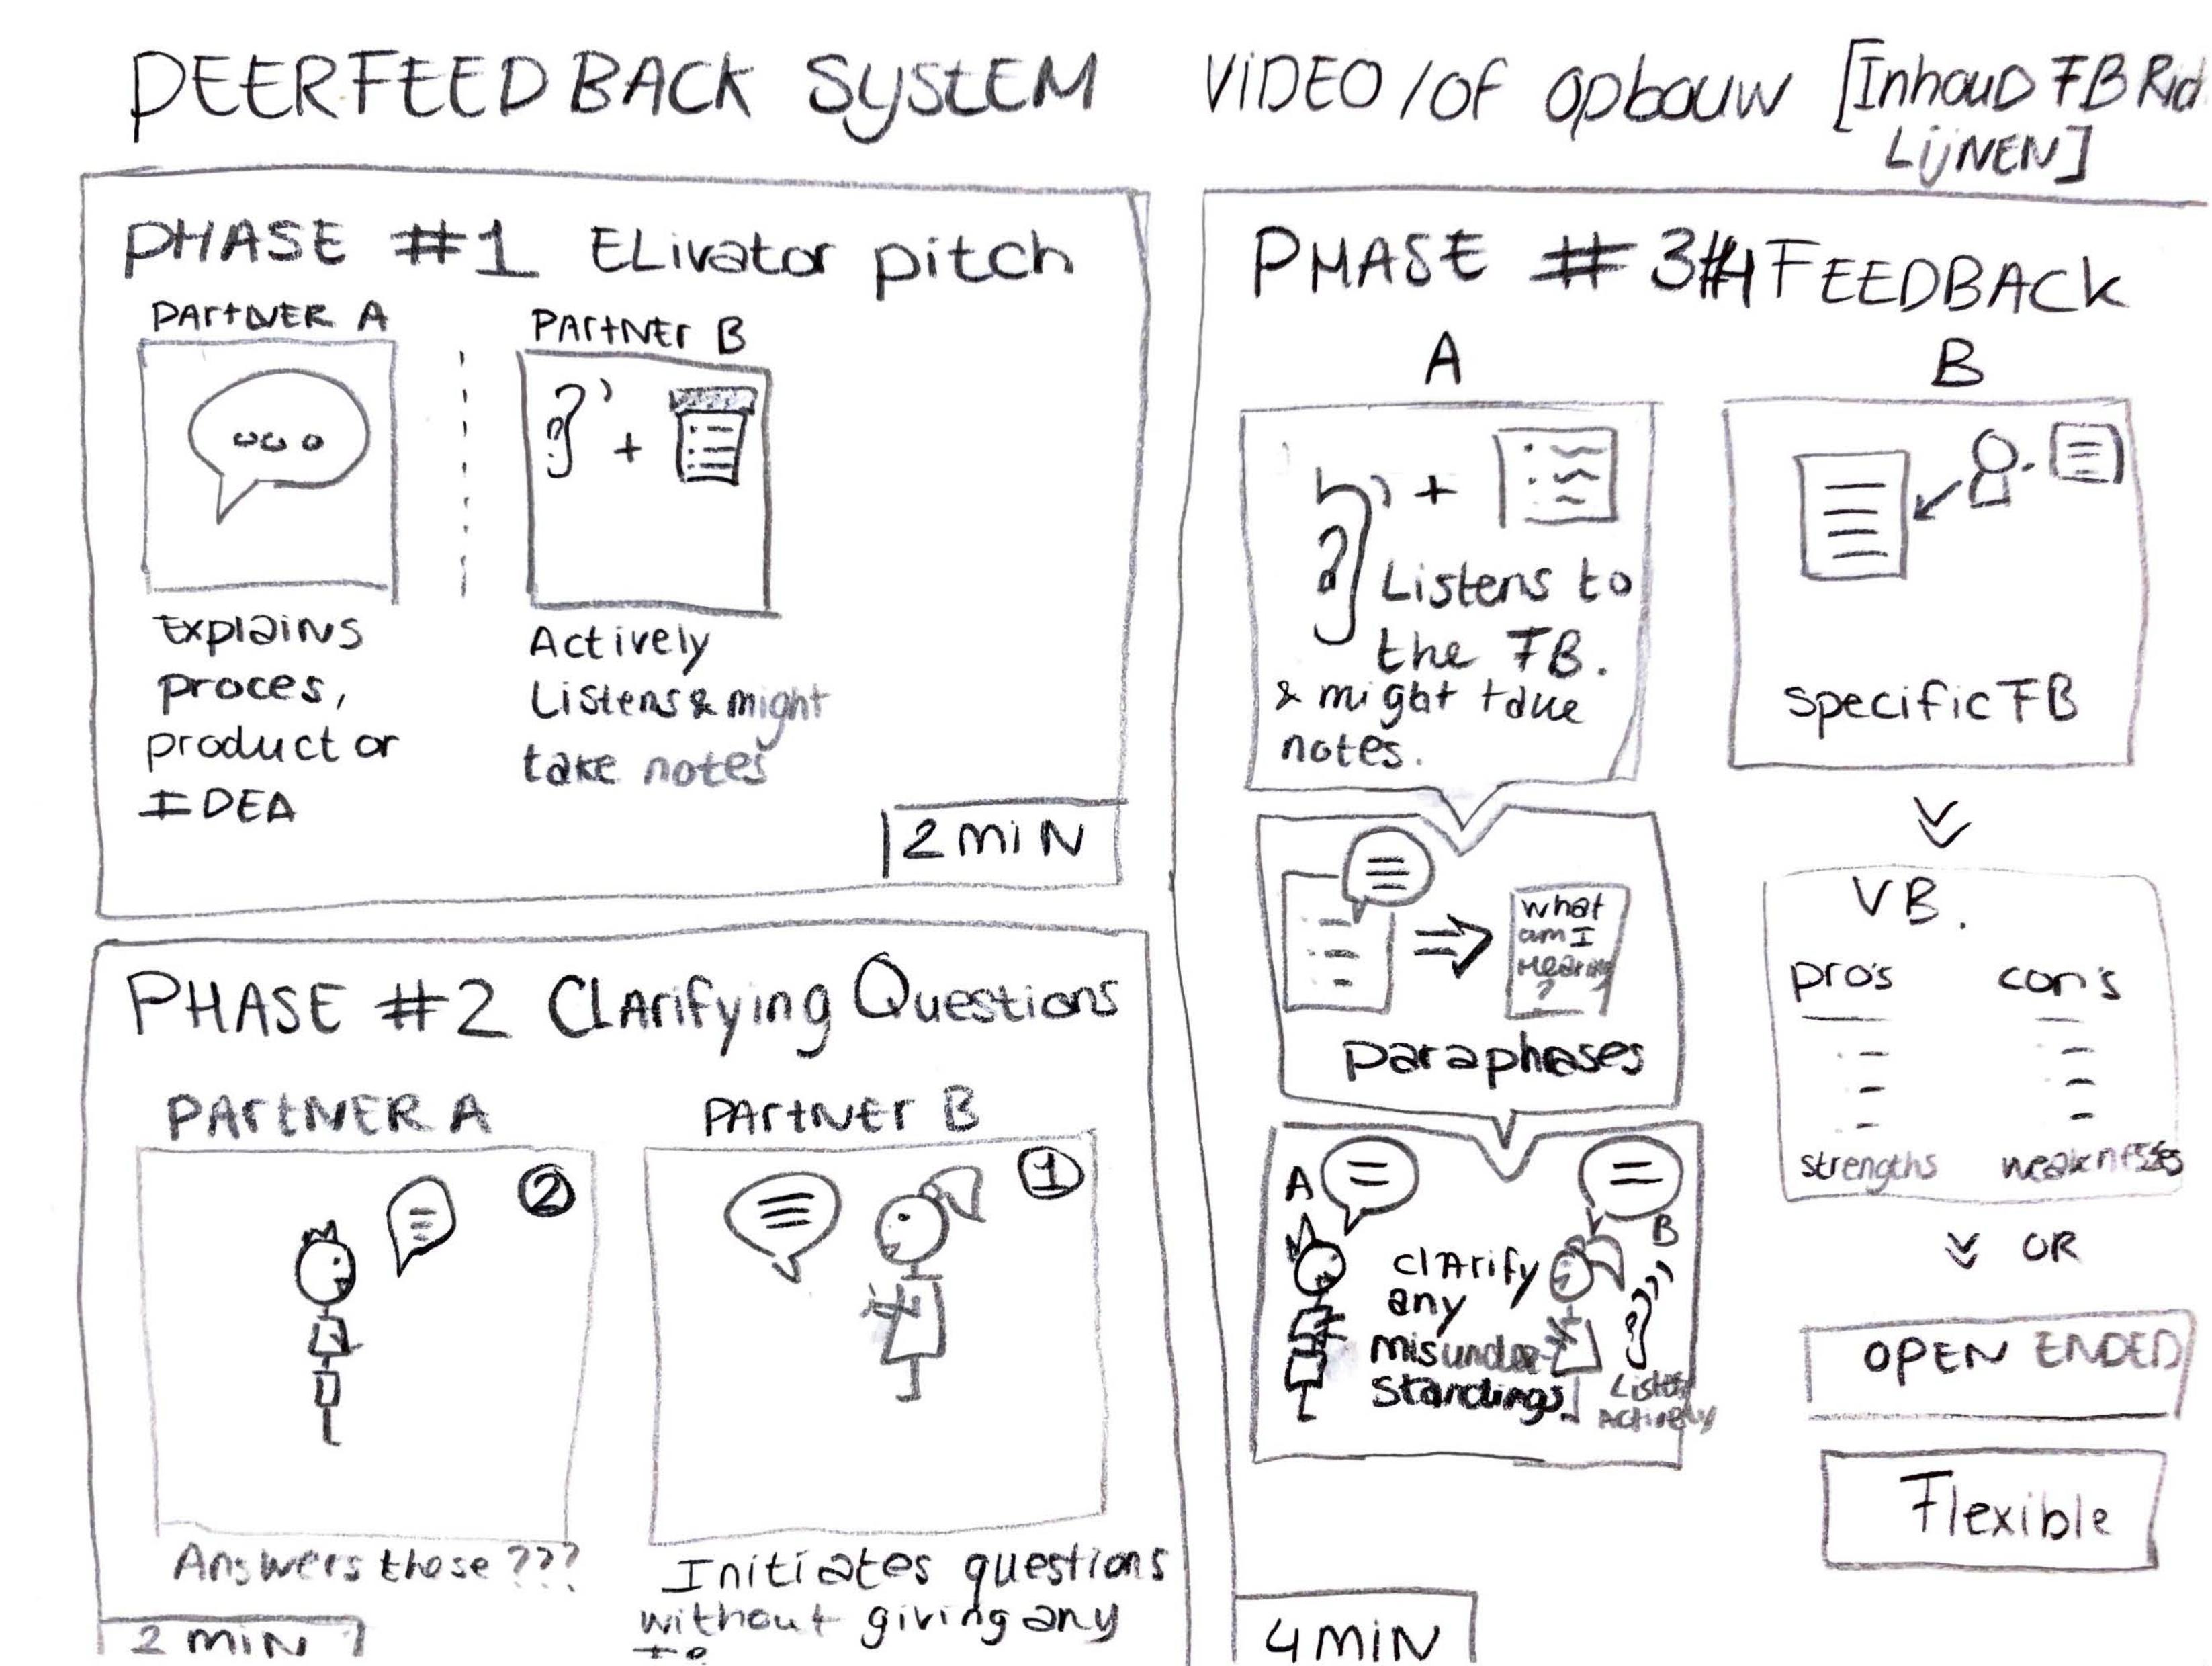 PEERFEEDBACK SYSTEM
VIDEO / OF Opbouw [Inhoud FB Rid
LijNEN]
PHASE #1 ELivator pitch
PARTNER A
PARTNER B
Explains
proces,
product or
IDEA
Actively
Listens & might
take notes
2 MIN
PHASE #2 Clarifying Questions
PARTNER A
PARTNER B
2
1
Answers those ???
Initiates questions
without giving any
2 MIN
PHASE # 3#4 FEEDBACK
A
B
+
+
Listens to
the FB.
& might take
notes.
specific FB
what
am I
Hearing
?
paraphases
A
B
clarify
any
misunder-
standings
Listen
Actively
VB.
pro's con's
strengths weaknesses
OR
OPEN ENDED
Flexible
4 MIN